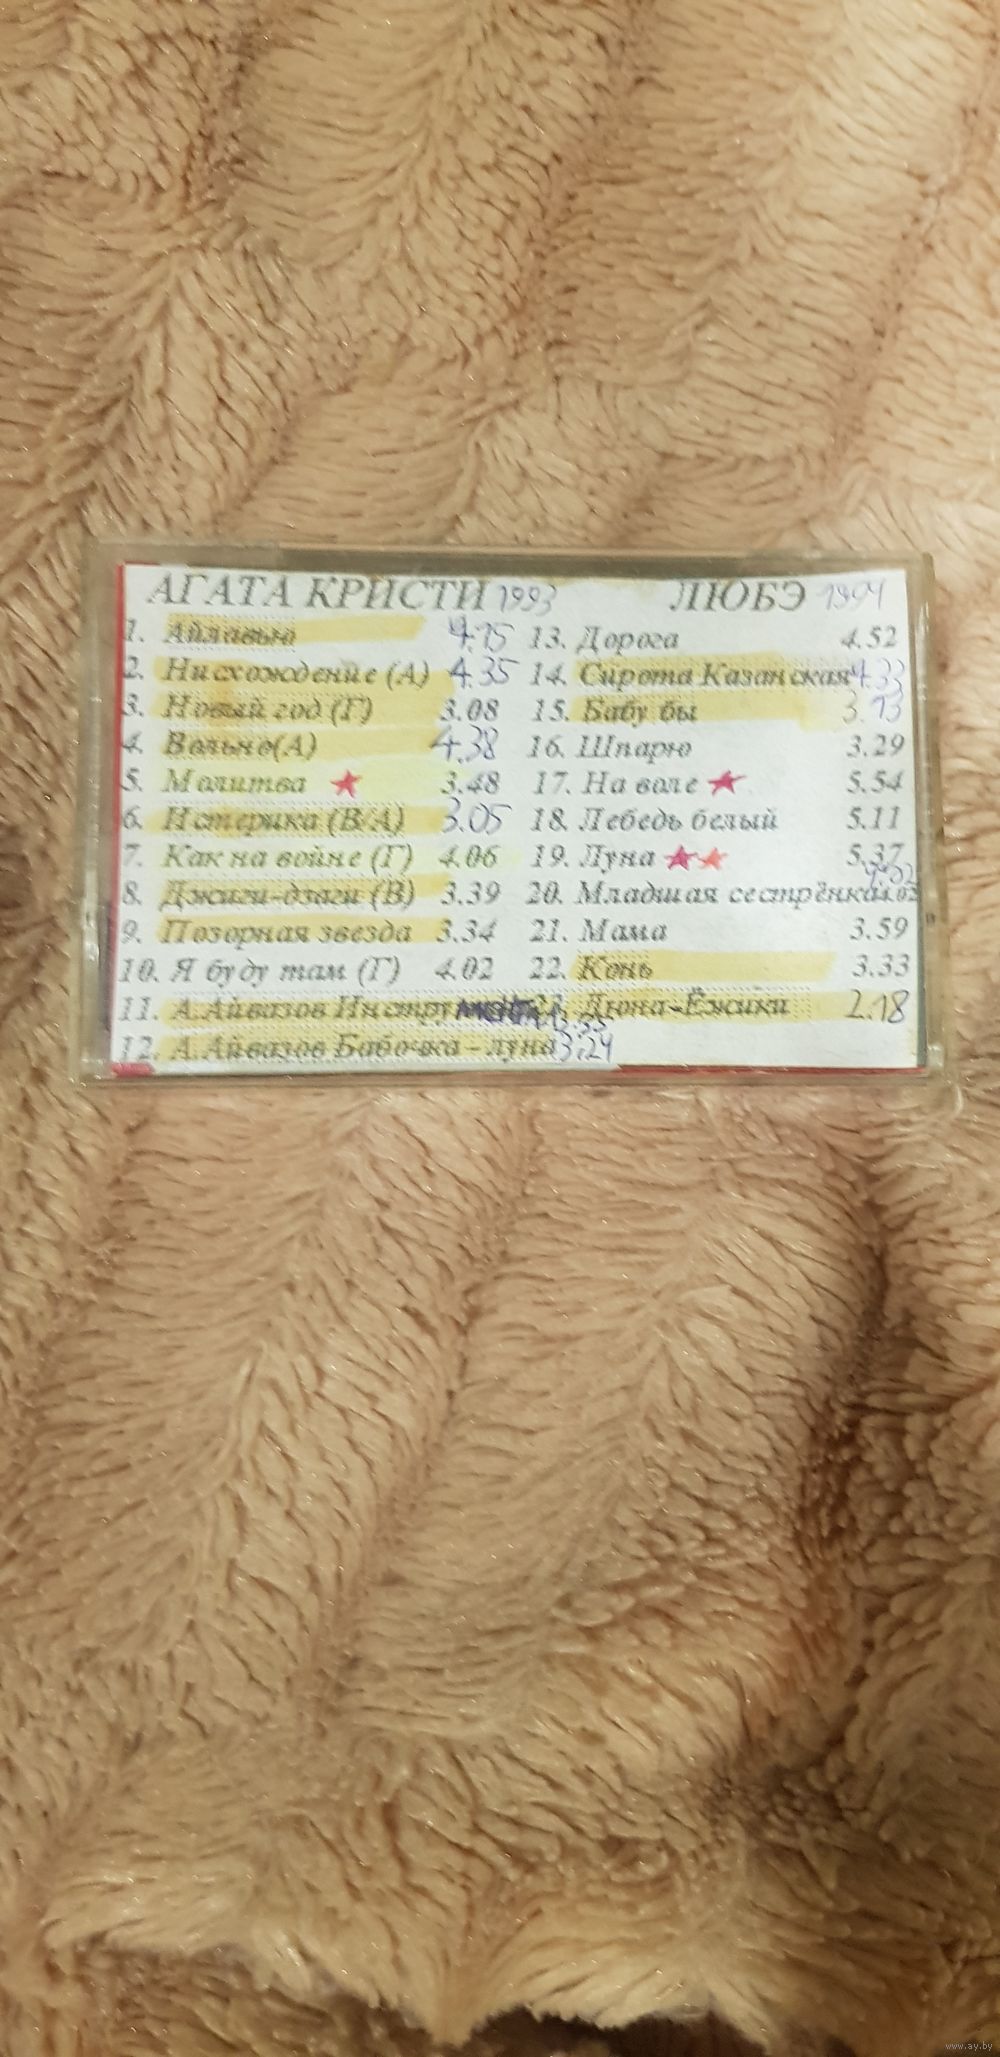 АГАТА КРИСТИ 1993 ЛЮБЭ 1994
1. Айлавью 4.15 13. Дорога 4.52
2. Нисхождение (А) 4.35 14. Сирота Казанская 4.33
3. Новый год (Г) 3.08 15. Бабу бы 3.13
4. Вольно(А) 4.38 16. Шпарю 3.29
5. Молитва 3.48 17. На воле 5.54
6. Истерика (В/А) 3.05 18. Лебедь белый 5.11
7. Как на войне (Г) 4.06 19. Луна 5.37
8. Джиги-дзаги (В) 3.39 20. Младшая сестрёнка 4.02
9. Позорная звезда 3.34 21. Мама 3.59
10. Я буду там (Г) 4.02 22. Конь 3.33
11. А.Айвазов Инструмент. 3.55 23. Дюна-Ёжики 2.18
12. А.Айвазов Бабочка-луна 3.24
www.ay.by